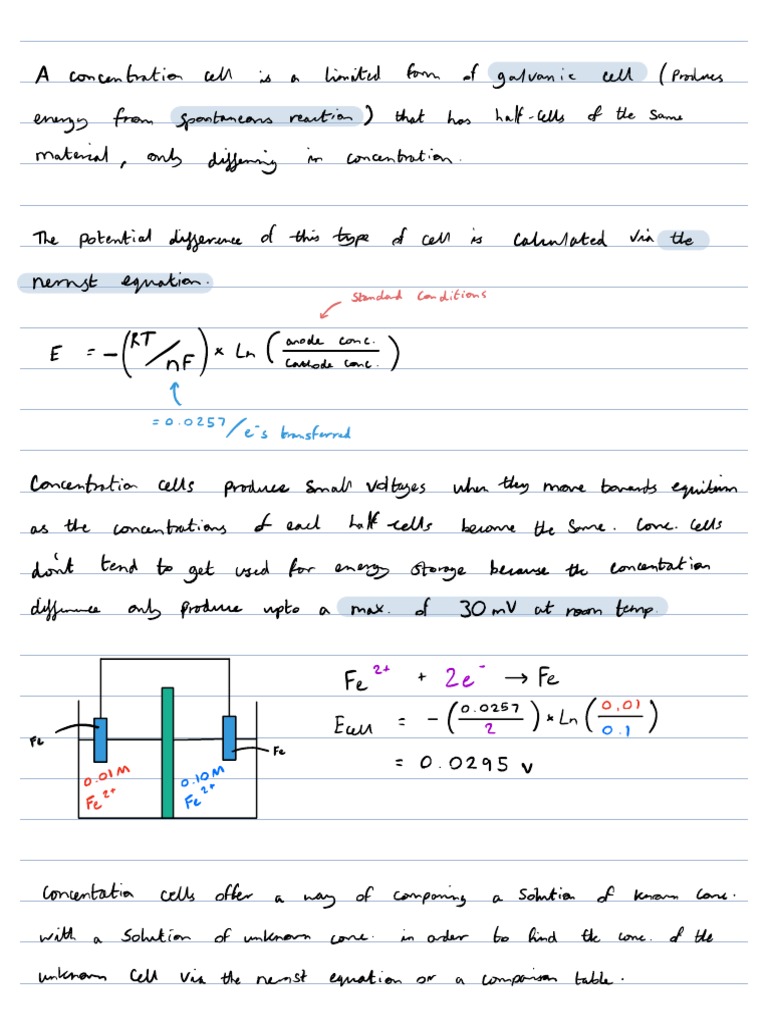 A concentration cell is a limited form of galvanic cell (Produces
energy from spontaneous reaction) that has half-cells of the same
material, only differing in concentration.
The potential difference of this type of cell is calculated via the
nernst equation.
Standard Conditions
E = -(RT/nF) * Ln (anode conc./cathode conc.)
= 0.0257/e⁻s transferred
Concentration cells produce small voltages when they move towards
as the concentrations of each half cells become the same. Conc. cells
don't tend to get used for energy storage because the concentation
difference only produce upto a max. of 30mV at room temp.
Fe²⁺ + 2e⁻ → Fe
Ecell = -(0.0257/2) * Ln (0.01/0.1)
= 0.0295 V
Fe
Fe
0.01M
Fe²⁺
0.10M
Fe²⁺
Concentation cells offer a way of comparing a solution of known conc.
with a solution of unknown conc. in order to find the conc. of the
unknown cell via the nernst equation or a comparison table.